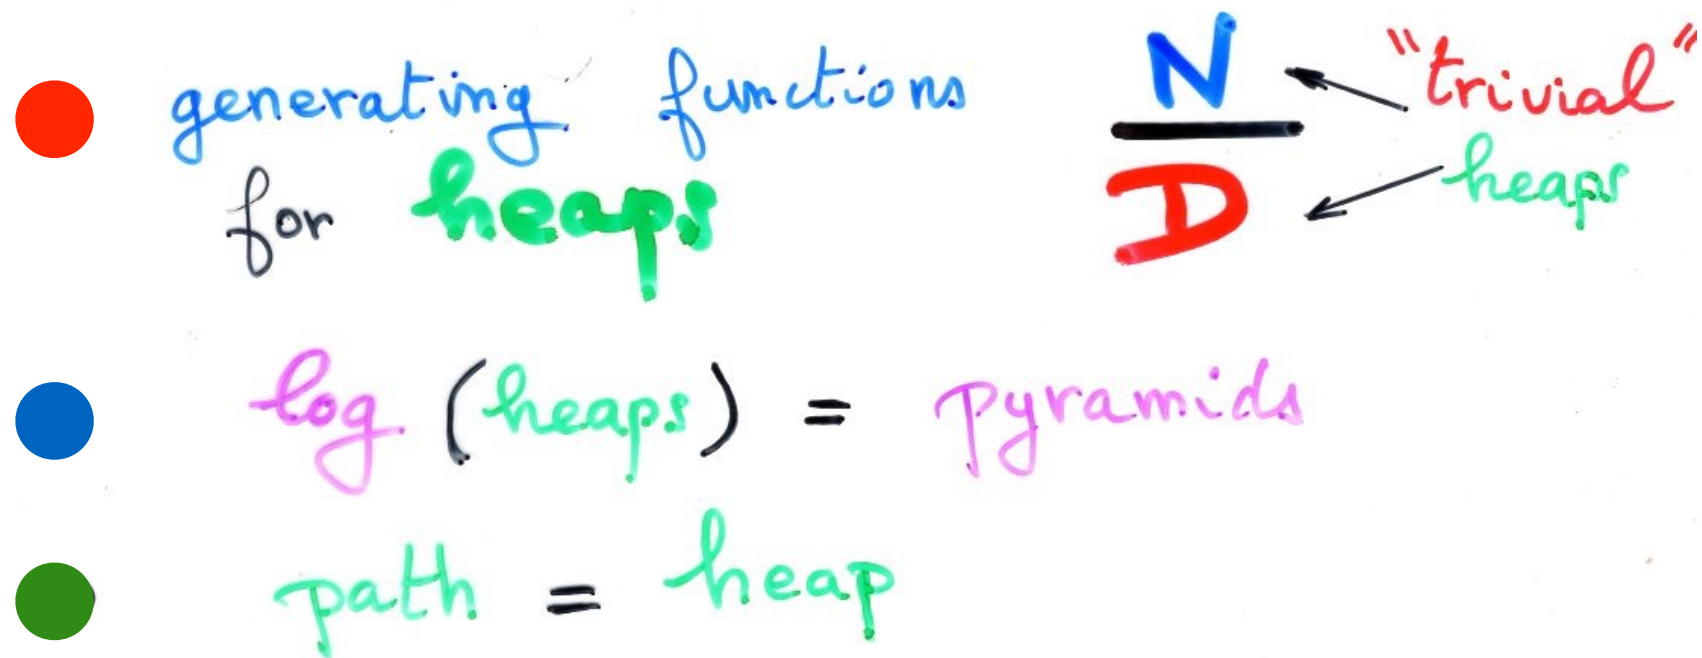 generating functions
for heaps
N
D
"trivial"
heaps
log (heaps) = pyramids
path = heap